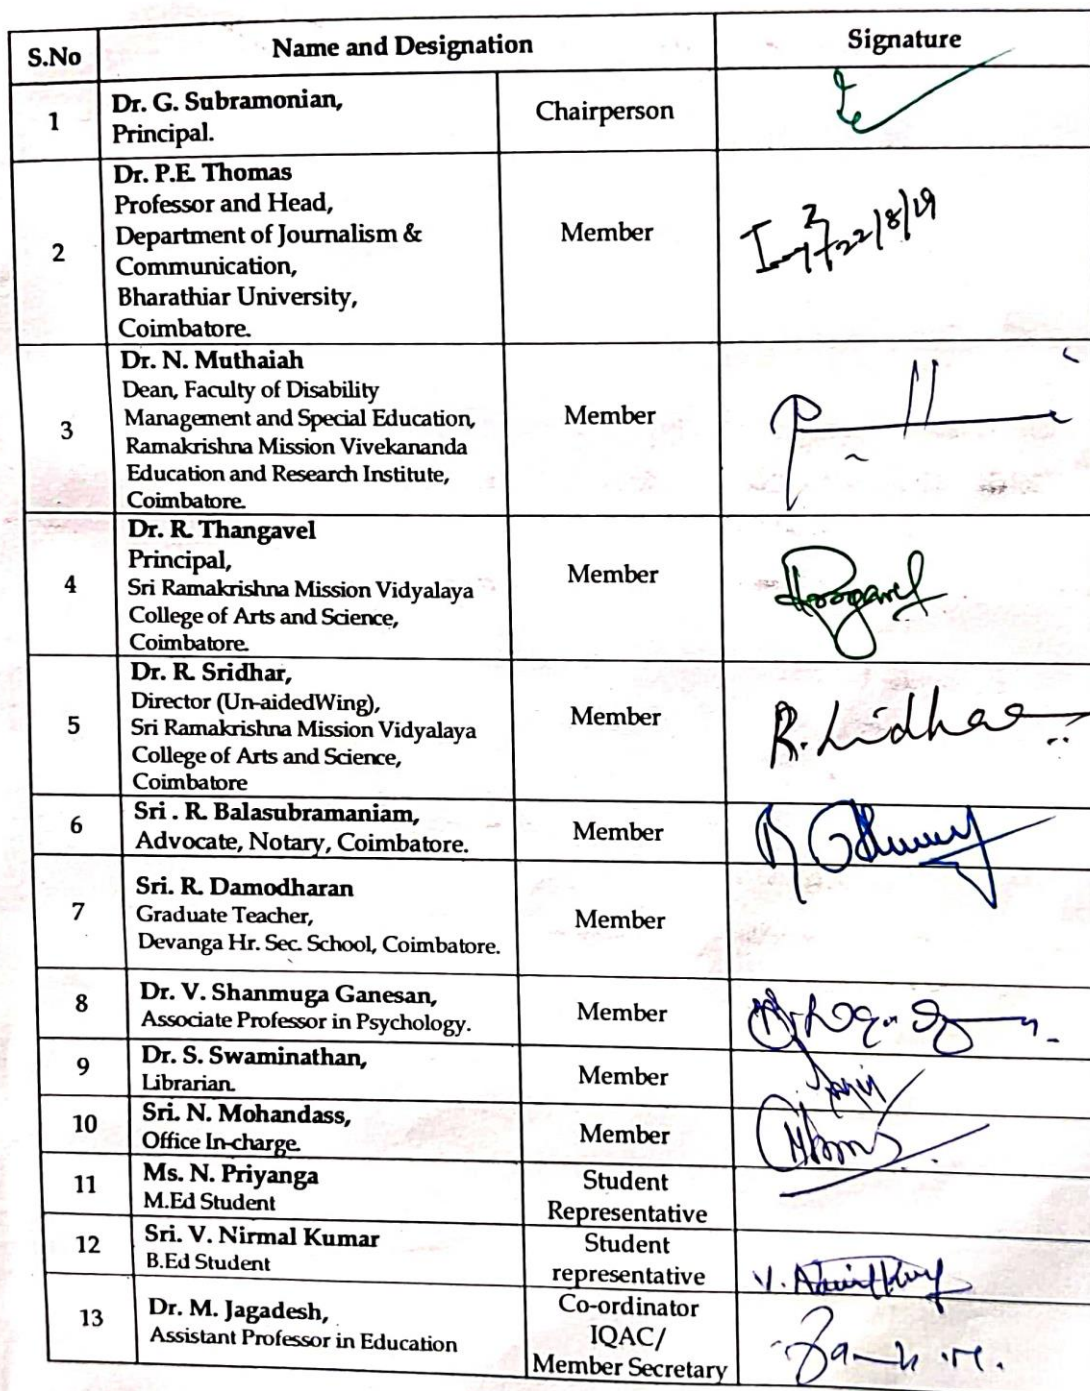 S.No Name and Designation Signature
1 Dr. G. Subramonian,
Principal.
Chairperson
2 Dr. P.E. Thomas
Professor and Head,
Department of Journalism &
Communication,
Bharathiar University,
Coimbatore.
Member
22/8/19
3 Dr. N. Muthaiah
Dean, Faculty of Disability
Management and Special Education,
Ramakrishna Mission Vivekananda
Education and Research Institute,
Coimbatore.
Member
4 Dr. R. Thangavel
Principal,
Sri Ramakrishna Mission Vidyalaya
College of Arts and Science,
Coimbatore.
Member
5 Dr. R. Sridhar,
Director (Un-aidedWing),
Sri Ramakrishna Mission Vidyalaya
College of Arts and Science,
Coimbatore
Member
6 Sri . R. Balasubramaniam,
Advocate, Notary, Coimbatore.
Member
7 Sri. R. Damodharan
Graduate Teacher,
Devanga Hr. Sec. School, Coimbatore.
Member
8 Dr. V. Shanmuga Ganesan,
Associate Professor in Psychology.
Member
9 Dr. S. Swaminathan,
Librarian.
Member
10 Sri. N. Mohandass,
Office In-charge.
Member
11 Ms. N. Priyanga
M.Ed Student
Student
Representative
12 Sri. V. Nirmal Kumar
B.Ed Student
Student
representative
13 Dr. M. Jagadesh,
Assistant Professor in Education
Co-ordinator
IQAC/
Member Secretary